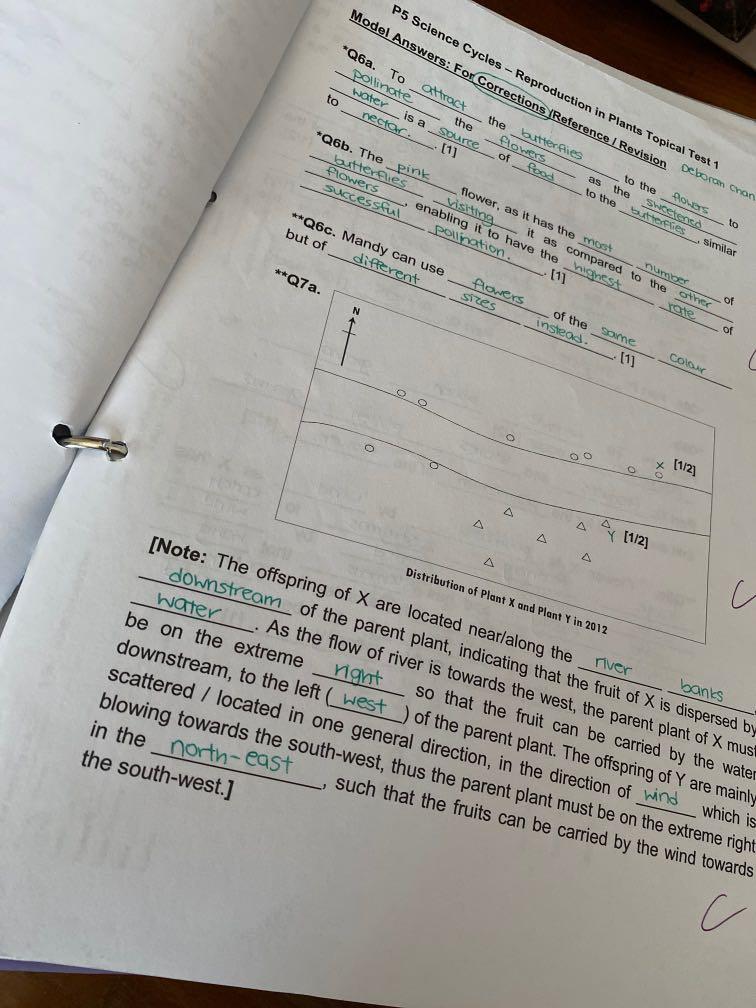 P5 Science Cycles – Reproduction in Plants Topical Test 1
Model Answers: For Corrections /Reference / Revision
Deborah Chan
*Q6a. To attract the butterflies to the flowers to
pollinate the flowers as the sweetened
water is a source of food to the butterflies, similar
to nectar. [1]
*Q6b. The pink flower, as it has the most number of
butterflies visiting it as compared to the other
flowers, enabling it to have the highest rate of
successful pollination. [1]
**Q6c. Mandy can use flowers of the same colour
but of different sizes instead. [1]
**Q7a.
N
X [1/2]
Y [1/2]
Distribution of Plant X and Plant Y in 2012
[Note: The offspring of X are located near/along the river banks,
downstream of the parent plant, indicating that the fruit of X is dispersed by
water. As the flow of river is towards the west, the parent plant of X must
be on the extreme right so that the fruit can be carried by the water
downstream, to the left (west) of the parent plant. The offspring of Y are mainly
scattered / located in one general direction, in the direction of wind which is
blowing towards the south-west, thus the parent plant must be on the extreme right
in the north-east, such that the fruits can be carried by the wind towards
the south-west.]